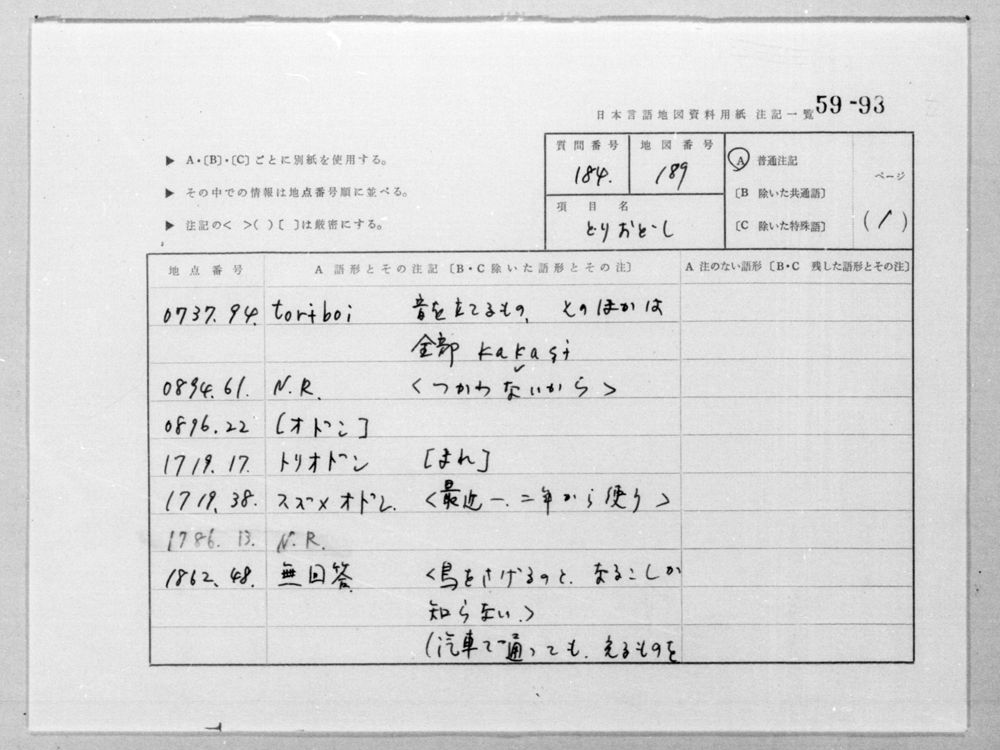 日本言語地図資料用紙 注記一覧 59-93
▶ A・〔B〕・〔C〕ごとに別紙を使用する。
▶ その中での情報は地点番号順に並べる。
▶ 注記の< >( )〔 〕は厳密にする。
質問番号 地図番号
184. 189
項目名
とりおどし
A 普通注記
〔B 除いた共通語〕
〔C 除いた特殊語〕
ページ
(1)
地点番号 A 語形とその注記〔B・C除いた語形とその注〕 A 注のない語形〔B・C 残した語形とその注〕
0737.94. toriboi 音を立てるもの、そのほかは
全部 kakasi
0894.61. N.R. <つかわないから>
0896.22 [オドシ]
1719.17. トリオドシ [まれ]
1719.38. スズメオドシ. <最近一、二年から使う>
1786.13. N.R.
1862.48. 無回答 <鳥をさげるのと、なるこしか
知らない.>
(汽車で通っても、見るものを